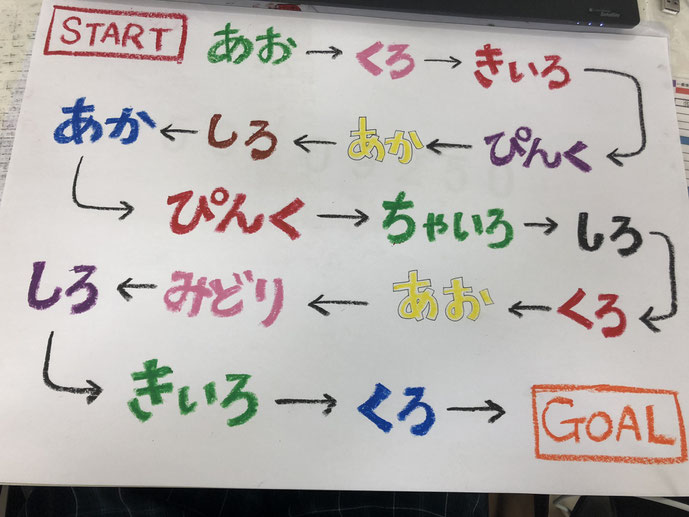 START あお → くろ → きいろ
あか ← しろ ← あか ← ぴんく
ぴんく → ちゃいろ → しろ
しろ ← みどり ← あお ← くろ
きいろ → くろ → GOAL